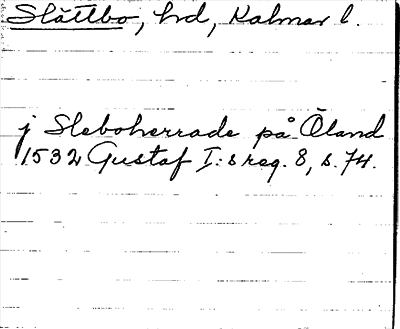 Slättbo, hd, Kalmar l.
j Sleboherrade på Öland
1532 Gustaf I:s reg. 8, s. 74.